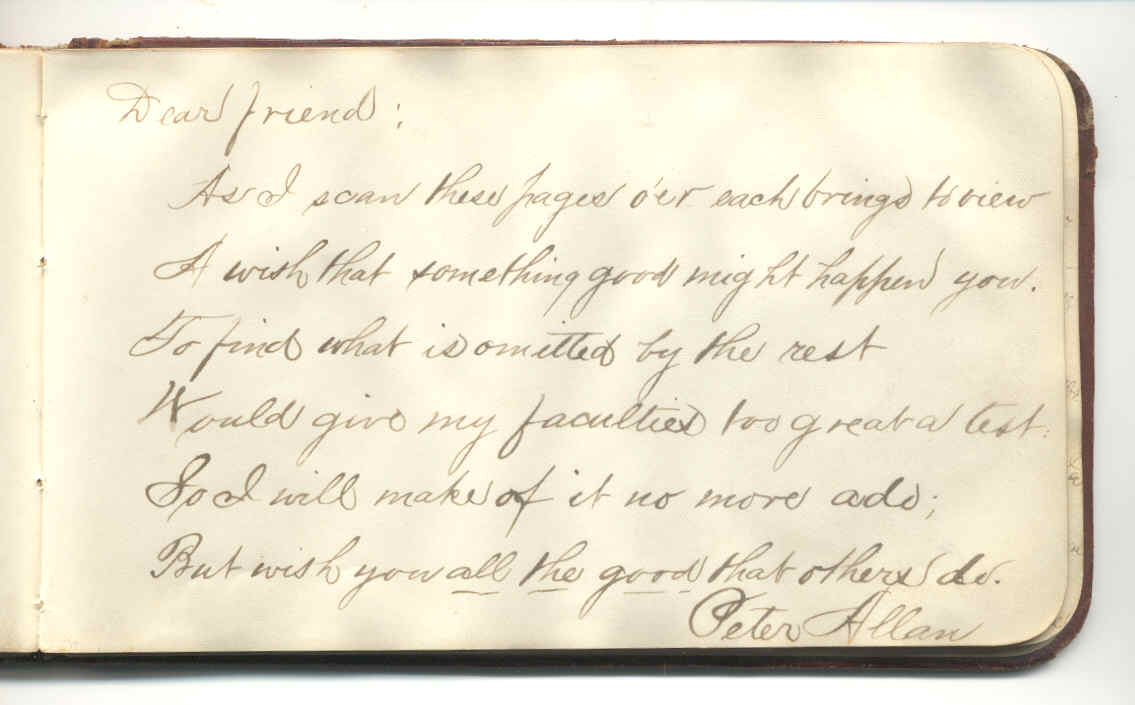 Dear friend:
As I scan these pages o'er each brings to view
A wish that something good might happen you.
To find what is omitted by the rest
Would give my faculties too great a test:
So I will make of it no more ado;
But wish you all the good that others do.
Peter Allan